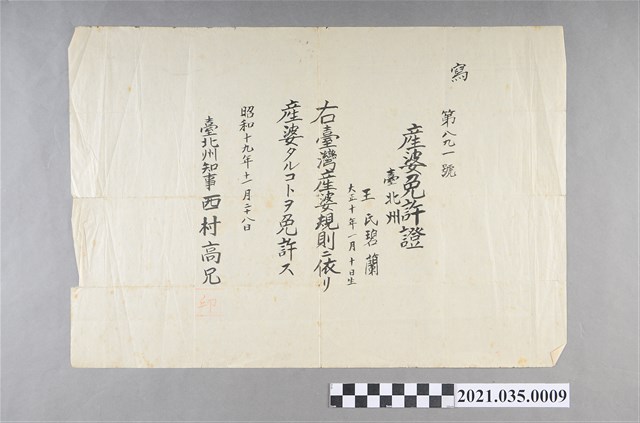 寫
第八九一號
産婆免許證
臺北州
王氏碧蘭
大正十年一月十日生
右臺灣産婆規則ニ依リ
産婆タルコトヲ免許ス
昭和十九年十一月二十八日
臺北州知事西村高兄
印
2021.035.0009